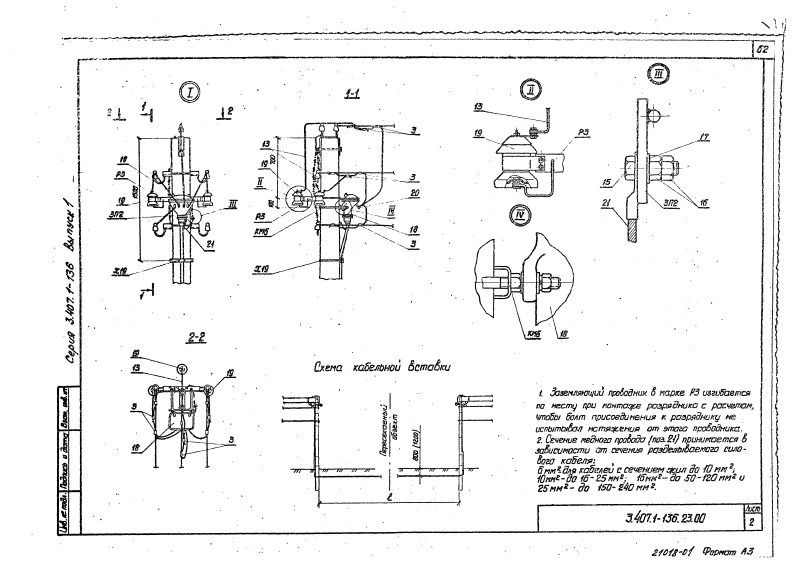 62
I
1-1
II
III
1
2
2
13
3
13
РЗ
17
18
13
700
19
РЗ
19
3
II
15
1500
19
ЗП2
III
100
20
IV
21
ЗП2
16
РЗ
КМ6
18
IV
21
3
Х19
Х19
1
КМ6
18
2-2
19
13
19
3
18
3
Схема кабельной вставки
Пересекаемый
объект
800 (1200)
ℓ
1. Заземляющий проводник в марке РЗ изгибается
по месту при монтаже разрядника с расчетом,
чтобы болт присоединения к разряднику не
испытывал натяжения от этого проводника.
2. Сечение медного провода (поз.21) принимается в
зависимости от сечения разделываемого сило-
вого кабеля:
6 мм² для кабелей с сечением жил до 10 мм²;
10мм²-до 16-25 мм²; 16мм²-до 50-120 мм² и
25 мм²- до 150-240 мм².
Серия 3.407.1-136 Выпуск 1
Инв. № подл. Подпись и дата Взам. инв. №
3.407.1-136.23.00
Лист
2
21018-01 Формат А3